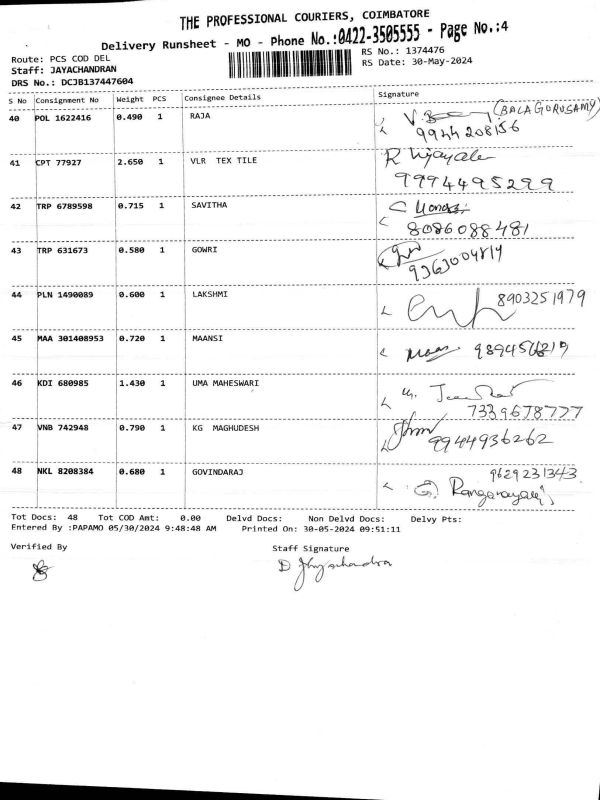 THE PROFESSIONAL COURIERS, COIMBATORE
Delivery Runsheet - MO - Phone No.:0422-3505555 - Page No.:4
Route: PCS COD DEL
RS No.: 1374476
Staff: JAYACHANDRAN
RS Date: 30-May-2024
DRS No.: DCJB137447604
S No Consignment No Weight PCS Consignee Details Signature
40 POL 1622416 0.490 1 RAJA (BALAGURUSAMY)
9944208156
41 CPT 77927 2.650 1 VLR TEX TILE R Vijayale
9994495299
42 TRP 6789598 0.715 1 SAVITHA
8086088481
43 TRP 631673 0.580 1 GOWRI
9363004814
44 PLN 1490089 0.600 1 LAKSHMI 8903251979
45 MAA 301408953 0.720 1 MAANSI
46 KDI 680985 1.430 1 UMA MAHESWARI
7339678777
47 VNB 742948 0.790 1 KG MAGHUDESH
9944936262
48 NKL 8208384 0.680 1 GOVINDARAJ 9629231343
G. Ranganayaki
Tot Docs: 48 Tot COD Amt: 0.00 Delvd Docs: Non Delvd Docs: Delvy Pts:
Entered By :PAPAMO 05/30/2024 9:48:48 AM Printed On: 30-05-2024 09:51:11
Verified By Staff Signature